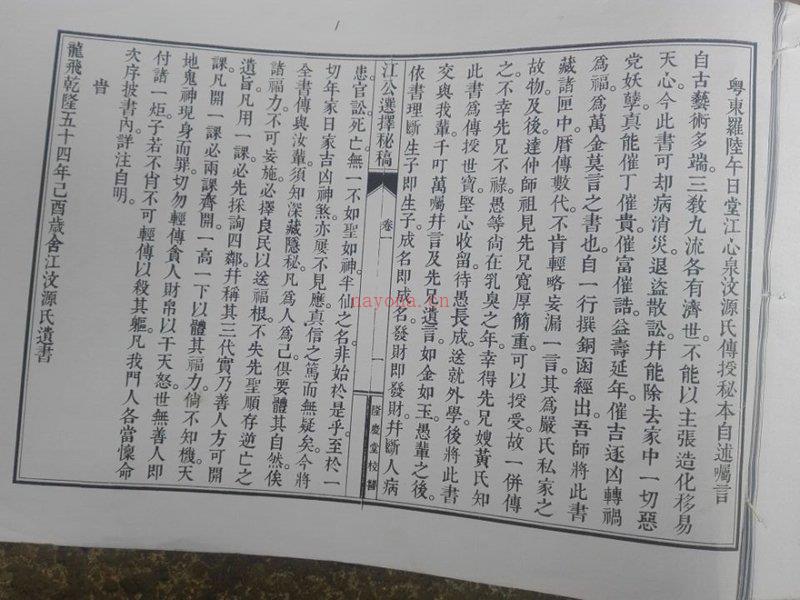 粤東羅陸午日堂江心泉汶源氏傳授秘本自述囑言
自古藝術多端。三敎九流各有濟世。不能以主張造化移易
天心。今此書可却病消災。退盜散訟。幷能除去家中一切惡
党妖孽。真能催丁催貴。催富催誥。益壽延年。催吉逐凶轉禍
爲福。爲萬金莫言之書也。自一行撰銅函經出吾師將此書
藏諸匣中。曆傳數代。不肯輕略妄漏一言。其爲嚴氏私家之
故物。及後達仲師祖見先兄寬厚簡重。可以授受。故一併傳
之不幸先兄不祿。愚等尙在乳臭之年。幸得先兄嫂黃氏知
此書爲傳授世寶。堅心收留。待愚長成。送就外學。後將此書
交與我輩。千叮萬囑。幷言及先兄遺言。如金如玉。愚輩之後。
依書理斷。生子即生子。成名即成名。發財即發財。幷斷人病
江公選擇秘稿
卷一
一
隆慶堂校譬
患官訟死亡。無一不如聖如神。半仙之名。非始於是乎。至於一
切年家日家吉凶神煞。亦屢不見應。真信之篤而無疑矣。今將
全書傳與汝輩。須知深藏隱秘。凡爲人爲己。俱要體其自然。俟
諸福力。不可妄施。必擇良民以送福根。不失先聖順存逆亡之
遺旨。凡用一課。必先採詢四鄰。幷稱其三代實乃善人。方可開
課。凡開一課。必兩課齊開。一高一下。以體其福力。倘不知機。天
地鬼神現身而罪。切勿輕傳貪人財帛。以干天怒。世無善人。即
付諸一炬。子若不肖。不可輕傳。以殺其軀。凡我門人。各當懍命
次序披書內。詳注自明。
旹
龍飛乾隆五十四年己酉歲舍江汶源氏遺書
nayona.cn